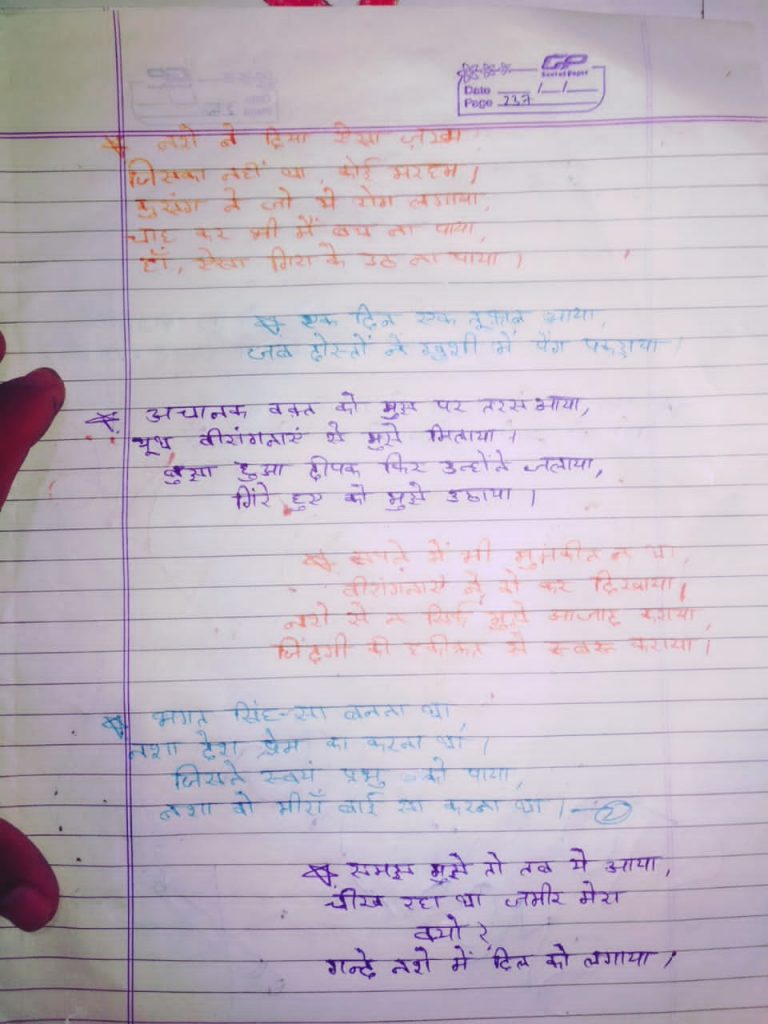 GP
Social Paper
Date __/__/__
Page 237
नशे ने दिया ऐसा ज़ख्म
जिसका नहीं था, कोई मरहम।
कुसंग ने जो ये रोग लगाया,
चाह कर भी मैं बच ना पाया,
हाँ, ऐसा गिरा के उठ ना पाया।
एक दिन एक तूफान आया,
जब दोस्तों ने खुशी में पैग पकड़ाया।
अचानक वक़्त को मुझ पर तरस आया,
यूथ वीरांगनाएं से मुझे मिलाया।
बुझा हुआ दीपक फिर उन्होंने जलाया,
गिरे हुए को मुझे उठाया।
सपने में भी मुमकीन न था,
वीरांगनाएं ने वो कर दिखाया,
नशे से न सिर्फ मुझे आजाद कराया,
जिंदगी की हकीकत से रूबरू कराया।
भगत सिंह-सा बनता था,
नशा देश प्रेम का करना था।
जिसने स्वयं प्रभु को पाया,
नशा वो मीराँ बाई सा करना था। - 2
समझ मुझे तो तब ये आया,
चीख रहा था ज़मीर मेरा
क्यों रे
गन्दे नशे में दिल को लगाया।